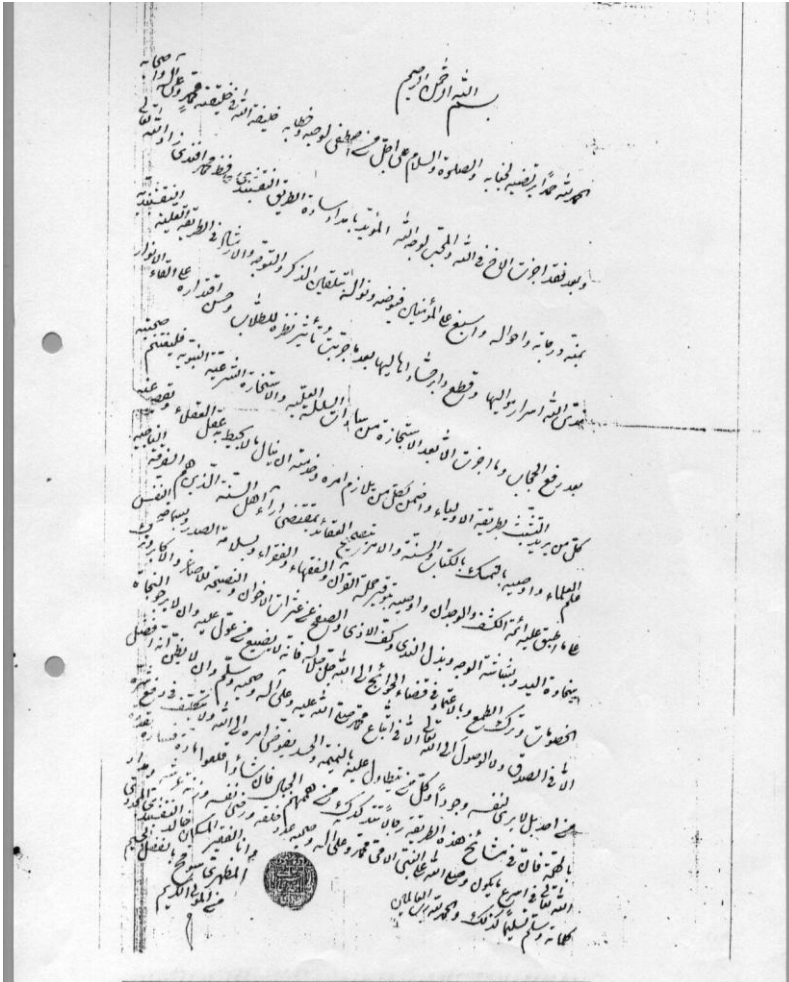 بسم الله الرحمن الرحيم
الحمد لله حمدا يرتضيه لجنابه والصلوة والسلام على اجل من اصطفى لوحيه وخطابه خليفة الله في خليقته محمد وعلى آله واصحابه
وبعد فقد اجزت الاخ في الله والمحب لوجه الله المؤيد بامداد سادة الطريق النقشبندي محمد افندي زاد الله تعالى
بمنه درجاته واحواله واسبغ على المؤمنين فيوضه ونواله بتلقين الذكر والتوجه والارشاد في الطريقة العلية النقشبندية
قدس الله اسرار مواليها بعد ما جربت تأثير نظره للطلاب وحسن اقتداره على القاء الانوار
بعد رفع الحجاب وما اجزت الا بعد الاستجازة من سادات السلسلة العلية والاستخارة الشرعية النبوية فليغتنم صحبته
كل من يريد التشبث بطريقة الاولياء واضمن لكل من يلازم امره وخدمته ان ينال ما لا يحيط به عقل العقلاء
علم العلماء واوصيه بالتمسك بالكتاب والسنة والامر بتصحيح العقائد بمقتضى آراء اهل السنة الذين هم الفرقة الناجية
على ما اطبق عليه ائمة الكشف والوجدان واوصيه بتوقير حملة القرآن والفقهاء والفقراء وبسلامة الصدر وسماحة النفس
وسخاوة اليد وبشاشة الوجه وبذل الندى وكف الاذى والصفح عن عثرات الاخوان والنصيحة للاصاغر والاكابر وترك
الخصومات وترك الطمع والاعتماد في قضاء الحوائج الى الله فانه لا يضيع من عول عليه وان لا يرجو النجاة
الا في الصدق ولا الوصول الى الله تعالى الا في اتباع محمد صلى الله عليه وعلى آله وصحبه وسلم وان لا يظن انه افضل
من احد بل لا يرى لنفسه وجودا وكل من يتطاول عليه بالنميمة والحسد يفوض امره الى الله ولا يتكلف في دفع شره
بالهمة فان في مشائخ هذه الطريقة رجالا من هممهم الجبال فان شاؤا قلعوا مادة فساده بقدرة
الله تعالى في اسرع ما يكون وصلى الله على النبي الامي محمد وعلى آله وصحبه عدد خلقه ورضى نفسه وزنة عرشه ومداد
كلماته وسلم تسليما كذلك والحمد لله رب العالمين
وانا الفقير المسكين خالد النقشبندي المجددي
المظهري
من المولى الكريم